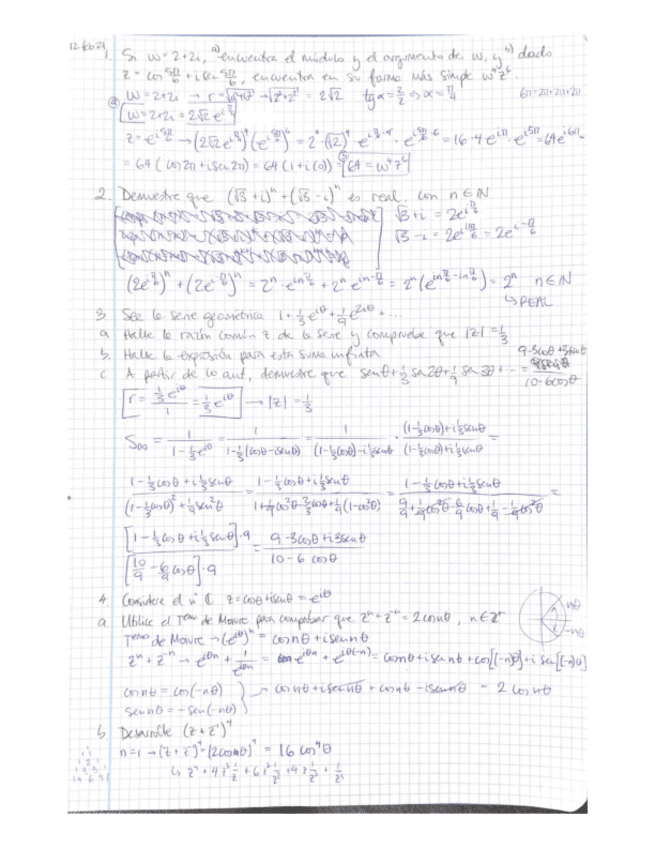 12 feb 21
1. Si w=2+2i, a) encuentra el módulo y el argumento de w, y b) dado
z = cos 5π/6 + i sen 5π/6, encuentra en su forma más simple w⁴z⁶.
w=2+2i → r=√(a²+b²) → √(2²+2²) = 2√2 tg α = 2/2 ⇒ α = π/4 6π=2π+2π+2π
a) w=2+2i = 2√2 e^(iπ/4)
z=e^(i5π/6) → (2√2 e^(iπ/4))⁴ (e^(i5π/6))⁶ = 2⁴·(√2)⁴·e^(iπ/4·4)·e^(i5π/6·6) = 16·4 e^(iπ)·e^(i5π) = 64e^(i6π) =
= 64 (cos2π+isen2π) = 64 (1+i(0)) = b) 64 = w⁴z⁶
2. Demuestre que (√3+i)ⁿ + (√3-i)ⁿ es real, con n∈ℕ
√3+i = 2e^(iπ/6)
√3-i = 2e^(i11π/6) = 2e^(i-π/6)
(2e^(iπ/6))ⁿ + (2e^(i-π/6))ⁿ = 2ⁿ·e^(inπ/6) + 2ⁿ e^(in-π/6) = 2ⁿ(e^(inπ/6-inπ/6)) = 2ⁿ n∈ℕ
↳ REAL
3. Sea la serie geométrica 1+⅓e^(iθ)+1/9 e^(2iθ)+...
a Halle la razón común z de la serie y compruebe que |z|=⅓
b. Halle la expresión para esta suma infinita
c A partir de lo ant, demuestre que senθ+⅓ sen2θ+1/9 sen3θ+... =
9-3cosθ+i3senθ
10-6cosθ
r = ⅓e^(iθ)/1 = ⅓e^(iθ) → |z| = ⅓
S∞ = 1/(1-⅓e^(iθ)) = 1/(1-⅓(cosθ-isenθ)) = 1/((1-⅓cosθ)-i⅓senθ) · ((1-⅓cosθ)+i⅓senθ)/((1-⅓cosθ)+i⅓senθ) =
(1-⅓cosθ+i⅓senθ)/((1-⅓cosθ)²+1/9 sen²θ) = (1-⅓cosθ+i⅓senθ)/(1+1/9cos²θ-⅔cosθ+1/9(1-cos²θ)) = (1-⅓cosθ+i⅓senθ)/(9/9+1/9cos²θ-6/9cosθ+1/9-1/9cos²θ) =
[1-⅓cosθ+i⅓senθ]·9 / [10/9-6/9cosθ]·9 = (9-3cosθ+i3senθ)/(10-6cosθ)
4. Considere el nº ℂ z=cosθ+isenθ = e^(iθ)
a Utilice el Tema de Moivre para comprobar que zⁿ+z⁻ⁿ = 2cosnθ, n∈ℤ⁺
nθ
-nθ
Tema de Moivre → (e^(iθ))ⁿ = cosnθ+isennθ
zⁿ+z⁻ⁿ → e^(iθn) + 1/e^(iθn) = e^(iθn)+e^(iθ(-n)) = cosnθ+isennθ+cos[(-n)θ]+i sen[(-n)θ]
cosnθ = cos(-nθ)
sennθ = -sen(-nθ)
→ cosnθ+isennθ+cosnθ-isennθ = 2cosnθ
b Desarrolle (z+z⁻¹)⁴
n=1 → (z+z⁻¹)⁴=(2cosθ)⁴ = 16 cos⁴θ
↳ z⁴+4z³1/z+6z²1/z²+4z1/z³+1/z⁴